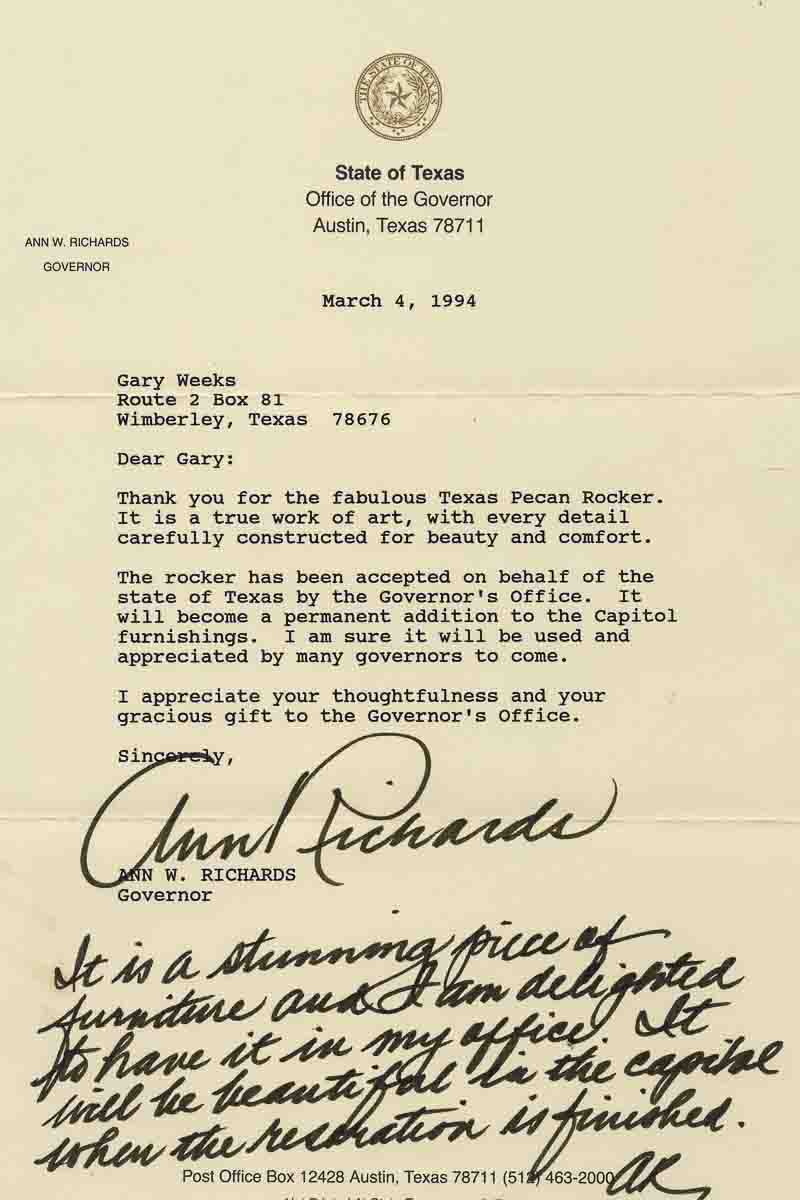 THE STATE OF TEXAS
State of Texas
Office of the Governor
Austin, Texas 78711
ANN W. RICHARDS
GOVERNOR
March 4, 1994
Gary Weeks
Route 2 Box 81
Wimberley, Texas 78676
Dear Gary:
Thank you for the fabulous Texas Pecan Rocker.
It is a true work of art, with every detail
carefully constructed for beauty and comfort.
The rocker has been accepted on behalf of the
state of Texas by the Governor's Office. It
will become a permanent addition to the Capitol
furnishings. I am sure it will be used and
appreciated by many governors to come.
I appreciate your thoughtfulness and your
gracious gift to the Governor's Office.
Sincerely,
Ann Richards
ANN W. RICHARDS
Governor
It is a stunning piece of
furniture and I am delighted
to have it in my office. It
will be beautiful in the capitol
when the resoration is finished.
AR
Post Office Box 12428 Austin, Texas 78711 (512) 463-2000